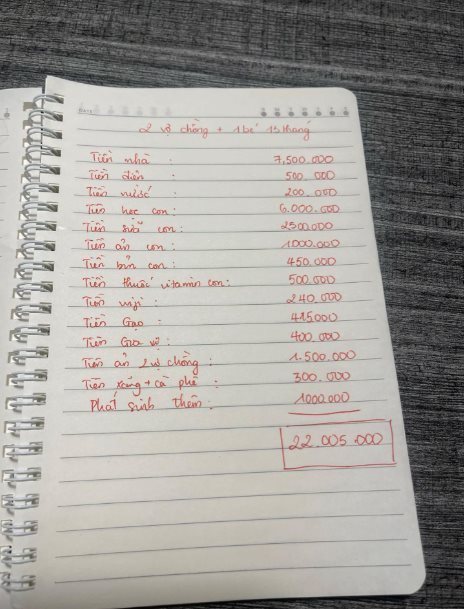 DATE
2 vợ chồng + 1 bé 15 tháng
Tiền nhà : 7,500.000
Tiền điện : 500.000
Tiền nước : 200.000
Tiền học con : 6.000.000
Tiền sữa con : 2500.000
Tiền ăn con : 1.000.000
Tiền bỉm con : 450.000
Tiền thuốc vitamin con : 500.000
Tiền wifi : 240.000
Tiền Gạo : 415.000
Tiền Gia vị : 400.000
Tiền ăn 2 vợ chồng : 1.500.000
Tiền xăng + cà phê : 300.000
Phát sinh thêm : 1000.000
22.005.000